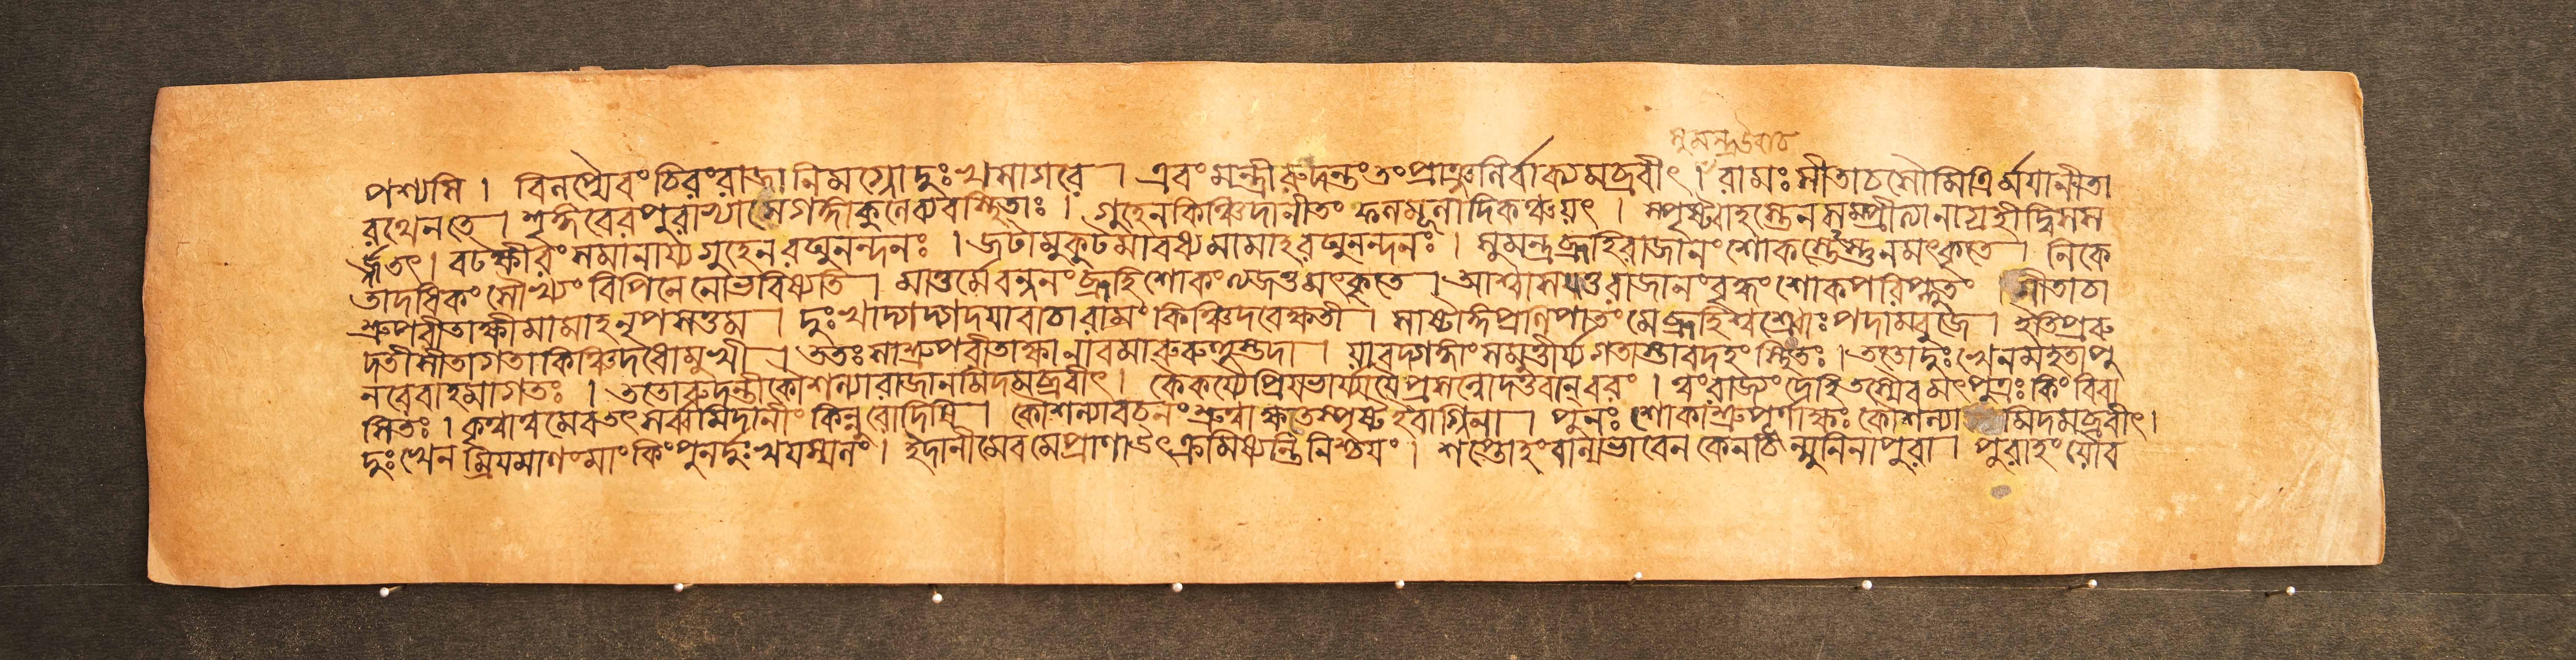 সুমন্ত্রউবাচ
পশ্যসি । বিলপ্যৈবং চিরং রাজা নিমগ্নো দুঃখসাগরে । এবং মন্ত্রী রুদন্তং তং প্রাঞ্জলির্বাক্যমব্রবীৎ । রামঃ সীতা চ সৌমিত্রির্ময়া নীতা
রথেন তে । শৃঙ্গিবেরপুরাখ্যাসে গঙ্গাকূলে ব্যবস্থিতাঃ । গুহেন কিঞ্চিদানীতং ফলমূলাদিকঞ্চ যৎ । স্পৃষ্ট্বা হস্তেন সম্প্রীত্যা নাগ্রহীদ্বিসস
র্জ্জতৎ । বটক্ষীরং সমানায্য গুহেন রঘুনন্দনঃ । জটামুকুটমাবধ্য মামাহ রঘুনন্দনঃ । সুমন্ত্র ব্রূহি রাজানং শোকস্তেস্তু ন মৎকৃতে । সাকে
তাদধিকং সৌখ্যং বিপিনে নো ভবিষ্যতি । মাতুর্মে বন্দনং ব্রূহি শোকং ত্যজতু মৎকৃতে । আশ্বাসয়তু রাজানং বৃদ্ধং শোকপরিপ্লুতং । সীতা চা
শ্রুপরীতাক্ষী মামাহ নৃপসত্তম । দুঃখাদ্গদ্গদয়া বাচা রামং কিঞ্চিদবেক্ষতী । সাষ্টাঙ্গপ্রণিপাতং মে ব্রূহি শ্বশ্র্বোঃ পদাম্বুজে । ইতি প্ররু
দতী সীতা গতা কিঞ্চিদধোমুখী । ততঃ সাশ্রুপরীতাক্ষা নাবমারুরুহুস্তদা । যাবদ্গঙ্গাং সমুত্তীর্য্য গতাস্তাবদহং স্থিতঃ । ততো দুঃখেন মহতা পু
নরেবাহমাগতঃ । ততো রুদন্তী কৌশল্যা রাজানমিদমব্রবীৎ । কৈকয্যৈ প্রিয়ভার্য্যায়ৈ প্রসন্নো দত্তবান্ বরং । ত্বং রাজ্যং দেহি তস্যৈব মৎপুত্রঃ কিং বিবা
সিতঃ । কৃত্বা ত্বমেব তৎ সর্ব্বমিদানীং কিন্নু রোদিষি । কৌশল্যাবচনং শ্রুত্বা ক্ষতে স্পৃষ্ট ইবাগ্নিনা । পুনঃ শোকাশ্রুপূর্ণাক্ষঃ কৌশল্যামিদমব্রবীৎ ।
দুঃখেন ম্রিয়মাণং মাং কিং পুনর্দুঃখয়স্যলং । ইদানীমেব মে প্রাণা উৎক্রমিষ্যন্তি নিশ্চয়ং । শপ্তোহং বাল্যভাবেন কেনচিন্মুনিনা পুরা । পুরাহং যৌব